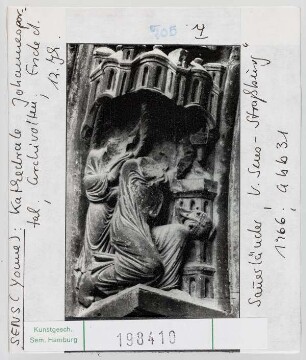 705
7
SENS (Yonne): Kathedrale Johannespor-
tal, Archivolten, Ende d.
12. Jh.
Sauerländer, V. Sens - Straßburg
1966, Abb 31
Kunstgesch.
Sem. Hamburg
198410